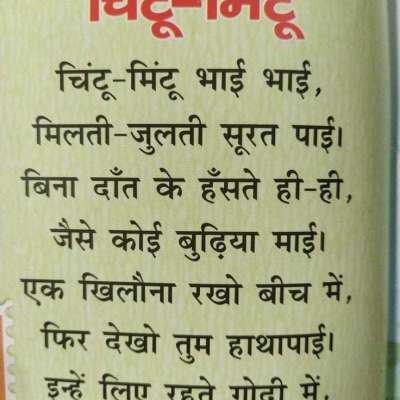 चिंटू-मिंटू
चिंटू-मिंटू भाई भाई,
मिलती-जुलती सूरत पाई।
बिना दाँत के हँसते ही-ही,
जैसे कोई बुढ़िया माई।
एक खिलौना रखो बीच में,
फिर देखो तुम हाथापाई।
इन्हें लिए रहते गोदी में,